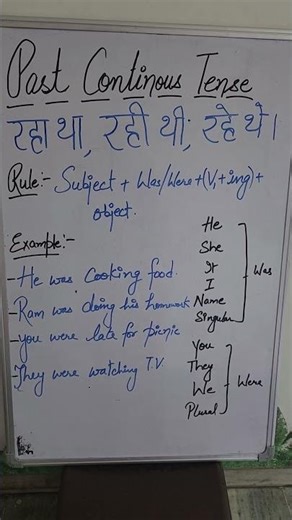 Past Continous Tense
रहा था, रही थी, रहे थे।
Rule:- Subject + Was/Were + (V1 + ing) +
object.
Example:-
- He was Cooking food.
- Ram was doing his homework
- you were late for picnic
- They were watching T.V.
He
She
It
I
Name
Singular
Was
You
They
We
Plural
Were